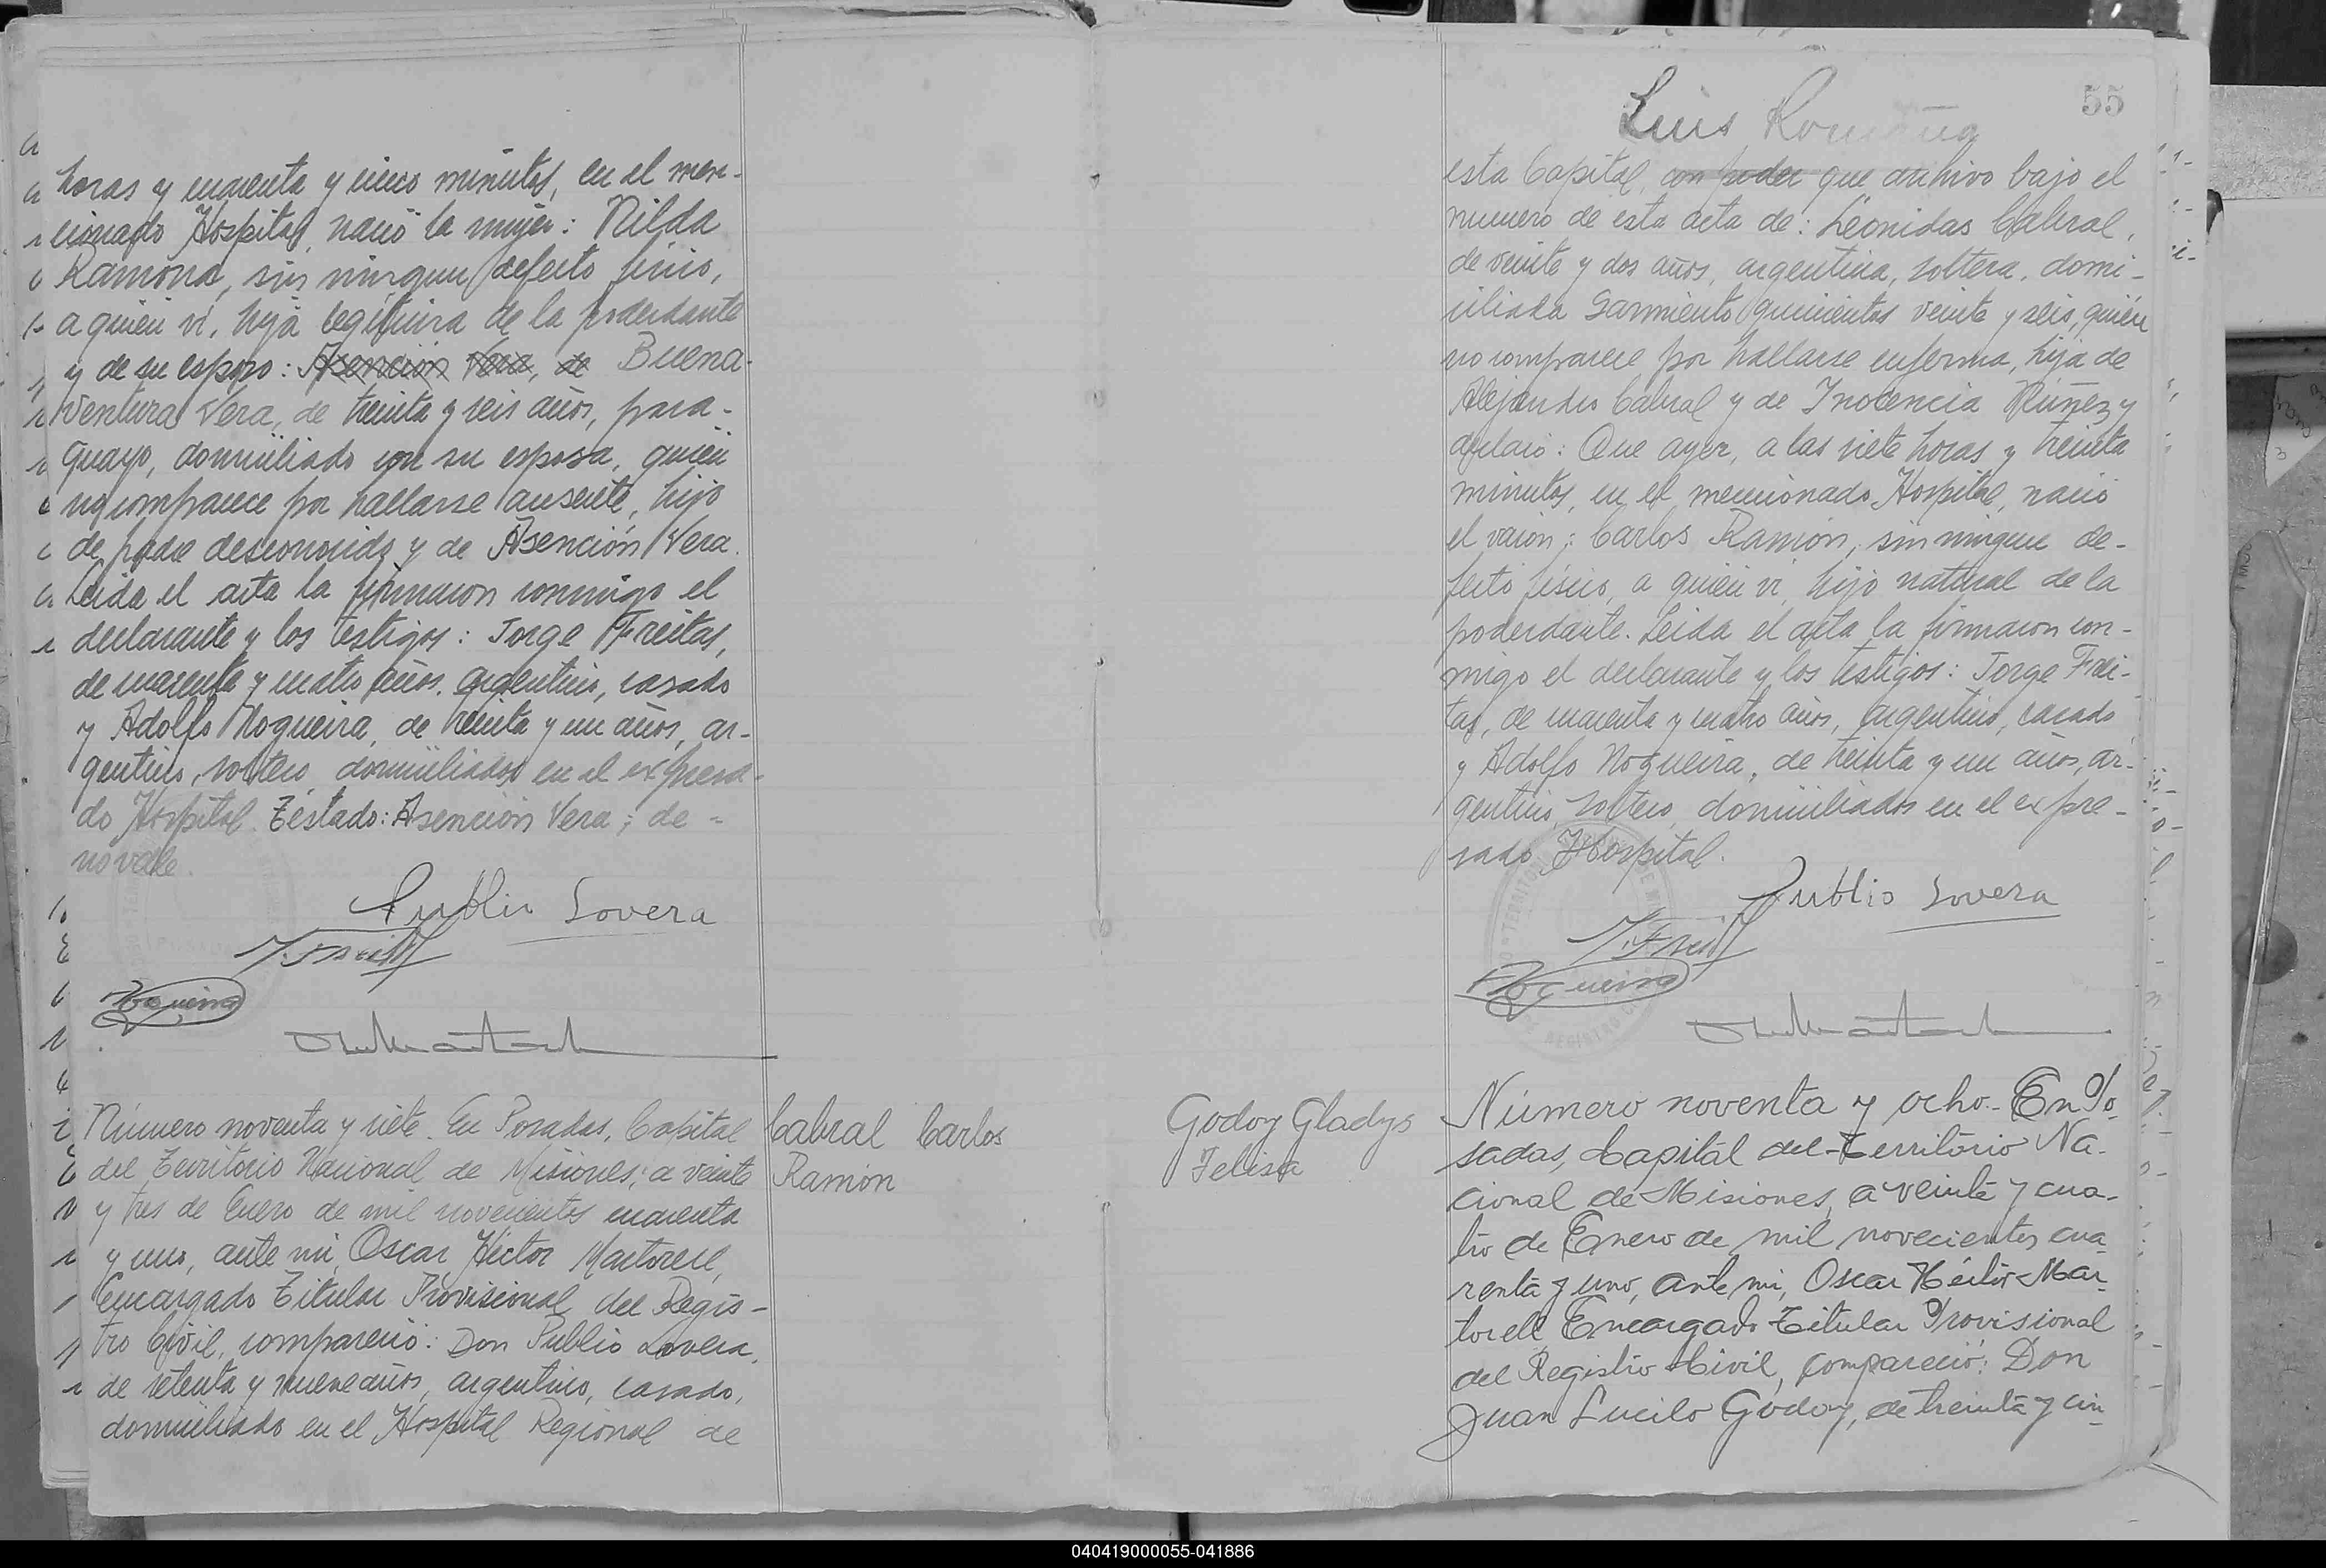 horas y cuarenta y cinco minutos, en el men-
cionado Hospital, nació la mujer: Nilda
Ramona, sin ningun defecto físico,
a quién ví, hija legítima de la poderdante
y de su esposo: Asención Vera, de Buena-
ventura Vera, de treinta y seis años, para-
guayo, domiciliado con su esposa, quién
no comparece por hallarse ausente, hijo
de padre desconocido y de Asención Vera.
Leída el acta la firmaron conmigo el
declarante y los testigos: Jorge Freitas,
de cuarenta y cuatro años, argentino, casado
y Adolfo Nogueira, de treinta y un años, ar-
gentino, soltero, domiciliados en el expresa-
do Hospital. Testado: Asención Vera; de =
no vale.
Publio Lovera
J. Freitas
Nogueira
Número noventa y siete. En Posadas, Capital
del Territorio Nacional de Misiones, a veinte
y tres de Enero de mil novecientos cuarenta
y uno, ante mi, Oscar Héctor Martorell,
Encargado Titular Provisional del Regis-
tro Civil, compareció: Don Publio Lovera,
de setenta y nueve años, argentino, casado,
domiciliado en el Hospital Regional de
Cabral Carlos
Ramón
55
Luis
esta Capital, con poder que archivo bajo el
numero de esta acta de: Leonidas Cabral,
de veinte y dos años, argentina, soltera, domi-
ciliada Sarmiento quinientos veinte y seis, quién
no comparece por hallarse enferma, hija de
Alejandro Cabral y de Inocencia Núñez y
declaró: Que ayer, a las siete horas y treinta
minutos, en el mencionado Hospital, nació
el varón: Carlos Ramón, sin ningun de-
fecto físico, a quién ví, hijo natural de la
poderdante. Leída el acta la firmaron con-
migo el declarante y los testigos: Jorge Frei-
tas, de cuarenta y cuatro años, argentino, casado
y Adolfo Nogueira, de treinta y un años, ar-
gentino, soltero, domiciliados en el expre-
sado Hospital.
Publio Lovera
J. Freitas
Nogueira
Godoy Gladys
Felisa
Número noventa y ocho.- En Po-
sadas, Capital del Territorio Na-
cional de Misiones, a veinte y cua-
tro de Enero de mil novecientos cua-
renta y uno, ante mi, Oscar Héctor Mar-
torell Encargado Titular Provisional
del Registro Civil, compareció: Don
Juan Lucilo Godoy, de treinta y cin-
040419000055-041886